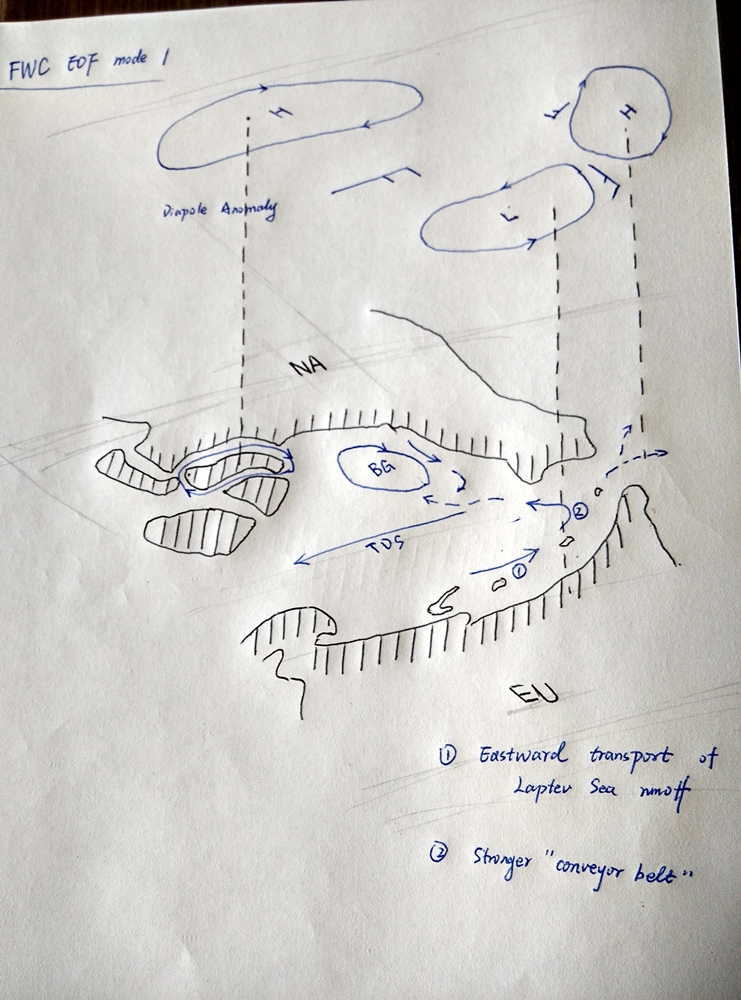 FWC EOF mode 1
H
H
Diapole Anomaly
L
NA
BG
②
TDS
①
EU
① Eastward transport of
Laptev Sea runoff
② Stronger "conveyor belt"